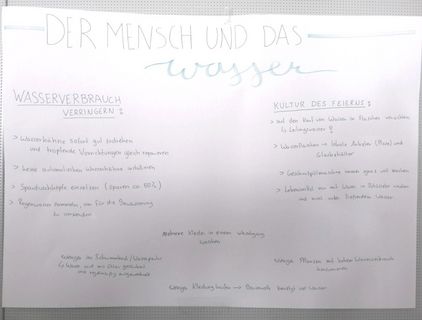 DER MENSCH UND DAS
Wasser
WASSERVERBRAUCH
VERRINGERN:
> Wasserhähne sofort gut zudrehen
und tropfende Vorrichtungen gleich reparieren
> keine automatischen Wasserhähne
> Sparduschköpfe einsetzen (sparen ca 50%)
> Regenwasser sammeln, um für die Bewässerung
zu verwenden
KULTUR DES FEIERNS:
> auf den Kauf von Wasser in Flaschen verzichten
↳ Leitungswasser!
> Wasserflaschen → lokale Anbieter
Glasbehälter
> Geschirrspülmaschine immer ganz voll machen
> Lebensmittel nur mit Wasser in Schüssel waschen
und nicht unter fließendem Wasser
Mehrere Kleider in einem Waschgang
waschen
weniger ins Schwimmbad/Wasserparks
↳ Wasser wird mit Chlor gereinigt
und regelmäßig ausgewechselt
weniger Pflanzen mit hohem Wasserverbrauch
konsumieren
weniger Kleidung kaufen → Baumwolle benötigt viel Wasser